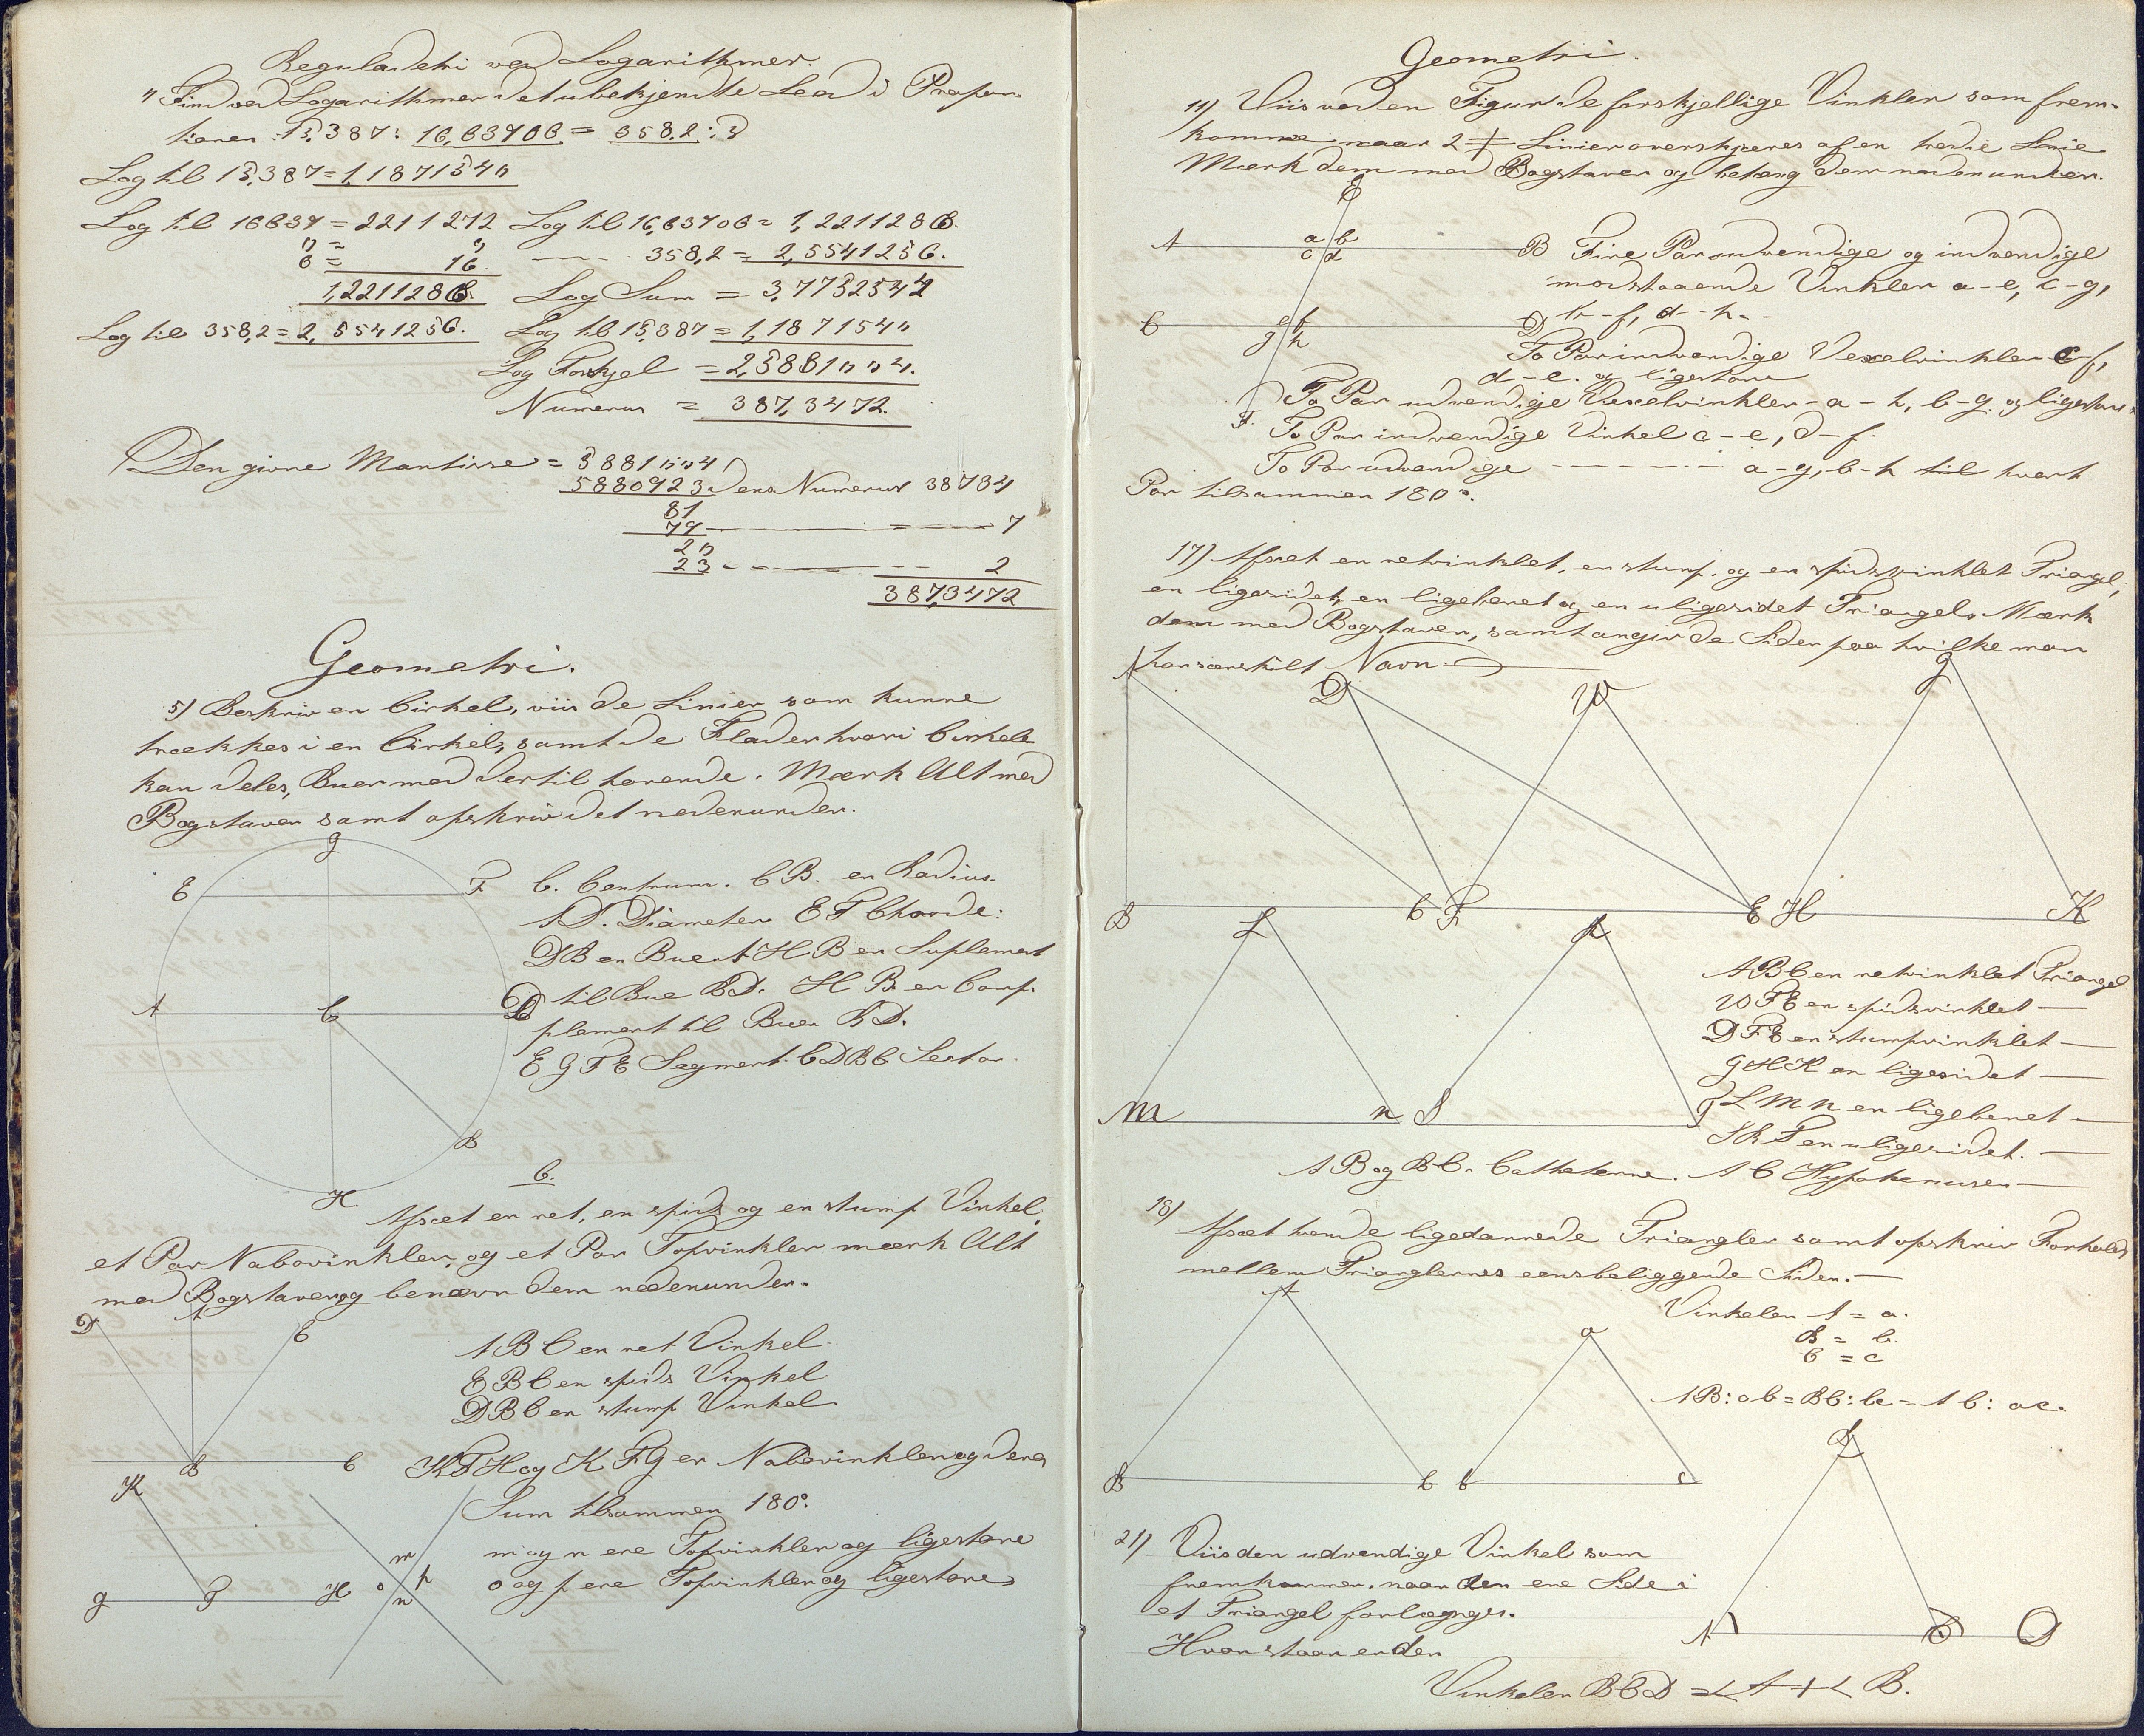 Reguladetri ved Logarithmer.
1) Find ved Logarithmer det ubekjendte Led i Propor-
tionen 15,387 : 16,63706 = 358,2 : D
Log til 15,387 = 1,1871540
Log til 16637 = 2211272 Log til 16,63706 = 1,2211286
0 = 0 358,2 = 2,5541256.
6 = 16
1,2211286. Log Sum = 3,7752542
Log til 358,2 = 2,5541256. Log til 15,387 = 1,1871540
Log Forskjel = 2,5881004.
Numerus = 387,3472.
Den givne Mantisse = 5881004
5880923 dens Numerus 38734
81
79 — = — 7
20
23 — 2
387,3472
Geometri.
5) Beskriv en Cirkel, viis de Linier som kunne
trækkes i en Cirkel, samt de Flader hvori Cirkele
kan deles, Buer med dertil horende. Mærk Alt med
Bogstaver samt opskriv det nedenunder.
g
E F C. Centrum. C B. en Radius.
A D. Diameter E F Chorde:
D B en Bue A H B en Suplement
A C D til Bue B D. H B en Comp-
plement til Buen B D.
E G F E Segment. C D B C Sector.
B
H
6.
Afsæt en ret, en spids og en stump Vinkel,
et Par Nabovinkler, og et Par Topvinkler mærk Alt
med Bogstaver og benævn dem nedenunder.
D A E
A B C en ret Vinkel
E B C en spids Vinkel
D B C en stump Vinkel
B C
K F H og K F G er Nabovinkler og deres
K
Sum tilsammen 180°.
m og n ere Topvinkler og ligestore
o og p ere Topvinkler og ligestore
m
o p
n
g F H
Geometri.
11) Viis ved en Figur de forskjellige Vinkler som frem-
komme naar 2 ≠ Linier overskjæres af en tredie Linie
Mærk dem med Bogstaver og betegn dem nedenunder.
E
A a b B Fire Par udvendige og indvendige
c d modstaaende Vinkler a-e, c-g,
C e f D b-f, d-h.
g h To Par indvendige Vexelvinkler c-f,
d-e. og ligestore
To Par udvendige Vexelvinkler - a-h, b-g. og ligestore
F. To Par indvendige Vinkel c-e, d-f.
To Par udvendige - - - - - - a-g, b-h til hvert
Par tilsammen 180°.
17) Afsæt en retvinklet, en stump. og en spidsvinklet Triangel,
en ligesidet, en ligebenet og en uligesidet Triangel. Mærk
dem med Bogstaver, samt angiv de Sider paa hvilke man
har særskilt Navn.
A D W g
B C F E H K
L R
A B C en retvinklet Triangel
W F E en spidsvinklet —
D F E en stumpvinklet —
G H K en ligesidet —
M n S T L M n en ligebenet —
S R T en uligesidet. —
A B og B C. Catheterne. A C Hypotenusen —
18)
Afsæt tvende ligedannede Triangler samt opskriv Forholdet
mellem Trianglernes eensbeliggende Sider. —
A Vinkelen A = a.
B = b.
C = c
a
A B : ab = B C : bc = A C : ac.
B C b c
B
21) Viis den udvendige Vinkel som
fremkommer, naar den ene Side i
et Triangel forlænges.
A C D
Hvor stor er den
Vinkelen B C D = < A + < B.